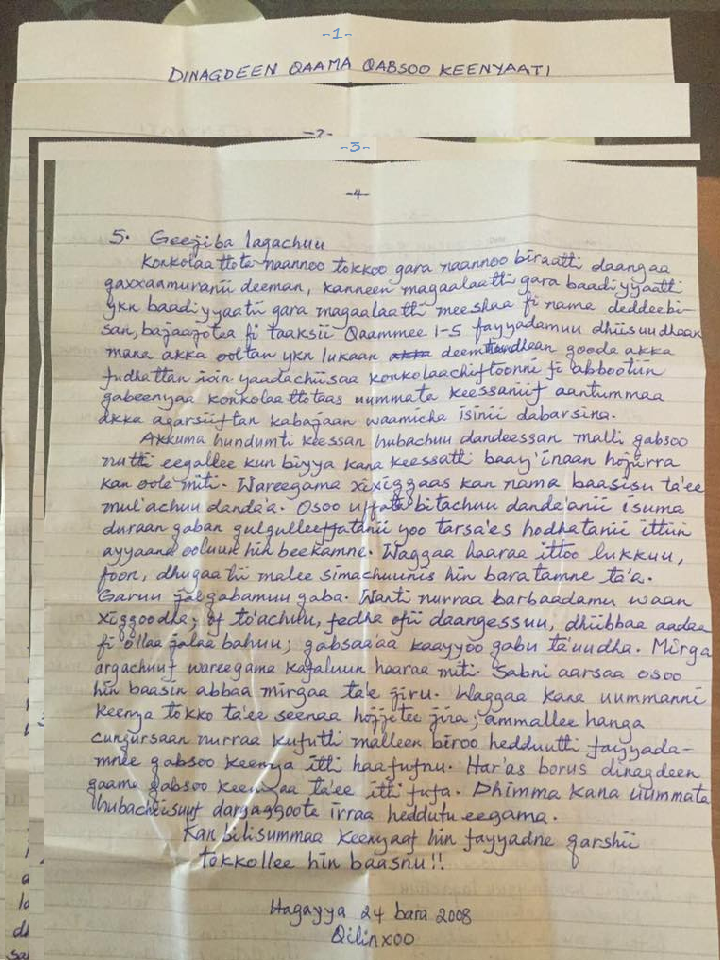 -1-
DINAGDEEN QAAMA QABSOO KEENYAATI
-2-
-3-
-4-
5. Geejiba lagachuu
Konkolaattota naannoo tokkoo gara naannoo biraatti daangaa
qaxxaamuranii deeman, kanneen magaalaatti gara baadiyyaatti
ykn baadiyyaatii gara magaalaatti meeshaa fi nama deddeebi-
san, bajaajotaa fi taaksii Qaammee 1-5 fayyadamuu dhiisuudhaan
mana akka ooltan ykn lukaan deemtan goodaa akka
fudhattan isin yaadachiisaa konkolaachiftoonni fi abbootiin
qabeenyaa konkolaattotaas uummata keessaniif aantummaa
akka agarsiiftan kabajaan waamicha isinii dabarsina.
Akkuma hundumti keessan hubachuu dandeessan malli qabsoo
nutti eegallee kun biyya kana keessatti baay'inaan hojiirra
kan oole miti. Wareegama xixiqqaas kan nama baasisu ta'ee
mul'achuu danda'a. Osoo uffata bitachuu danda'anii isuma
duraan qaban qulqulleeffatanii yoo tarsa'es hodhatanii ittiin
ayyaana ooluun hin beekamne. Waggaa haaraa ittoo lukkuu,
foon, dhugaatii malee simachuunis hin baratamne ta'a.
Garuu jalqabamuu qaba. Wanti nurraa barbaadamu waan
xiqqoodha; of to'achuu, fedha ofii daangessuu, dhiibbaa aadaa
fi ollaa jalaa bahuu; qabsaa'aa kaayyoo qabu ta'uudha. Mirga
argachuuf wareegama kafaluun haaraa miti. Sabni aarsaa osoo
hin baasin abbaa mirgaa ta'e jiru. Waggaa kana uummanni
keenya tokko ta'ee seenaa hojjetee jira; ammallee hanga
cunqursaan nurraa kufutti malleen biroo hedduutti fayyada-
mnee qabsoo keenya itti haafufnu. Har'as borus dinagdeen
qaama qabsoo keenyaa ta'ee itti fufa. Dhimma kana uummata
hubachiisuuf dargaggoota irraa heddutu eegama.
Kan bilisummaa keenyaaf hin fayyadne qarshii
tokkollee hin baasnu!!
Hagayya 24 bara 2008
Qilinxoo